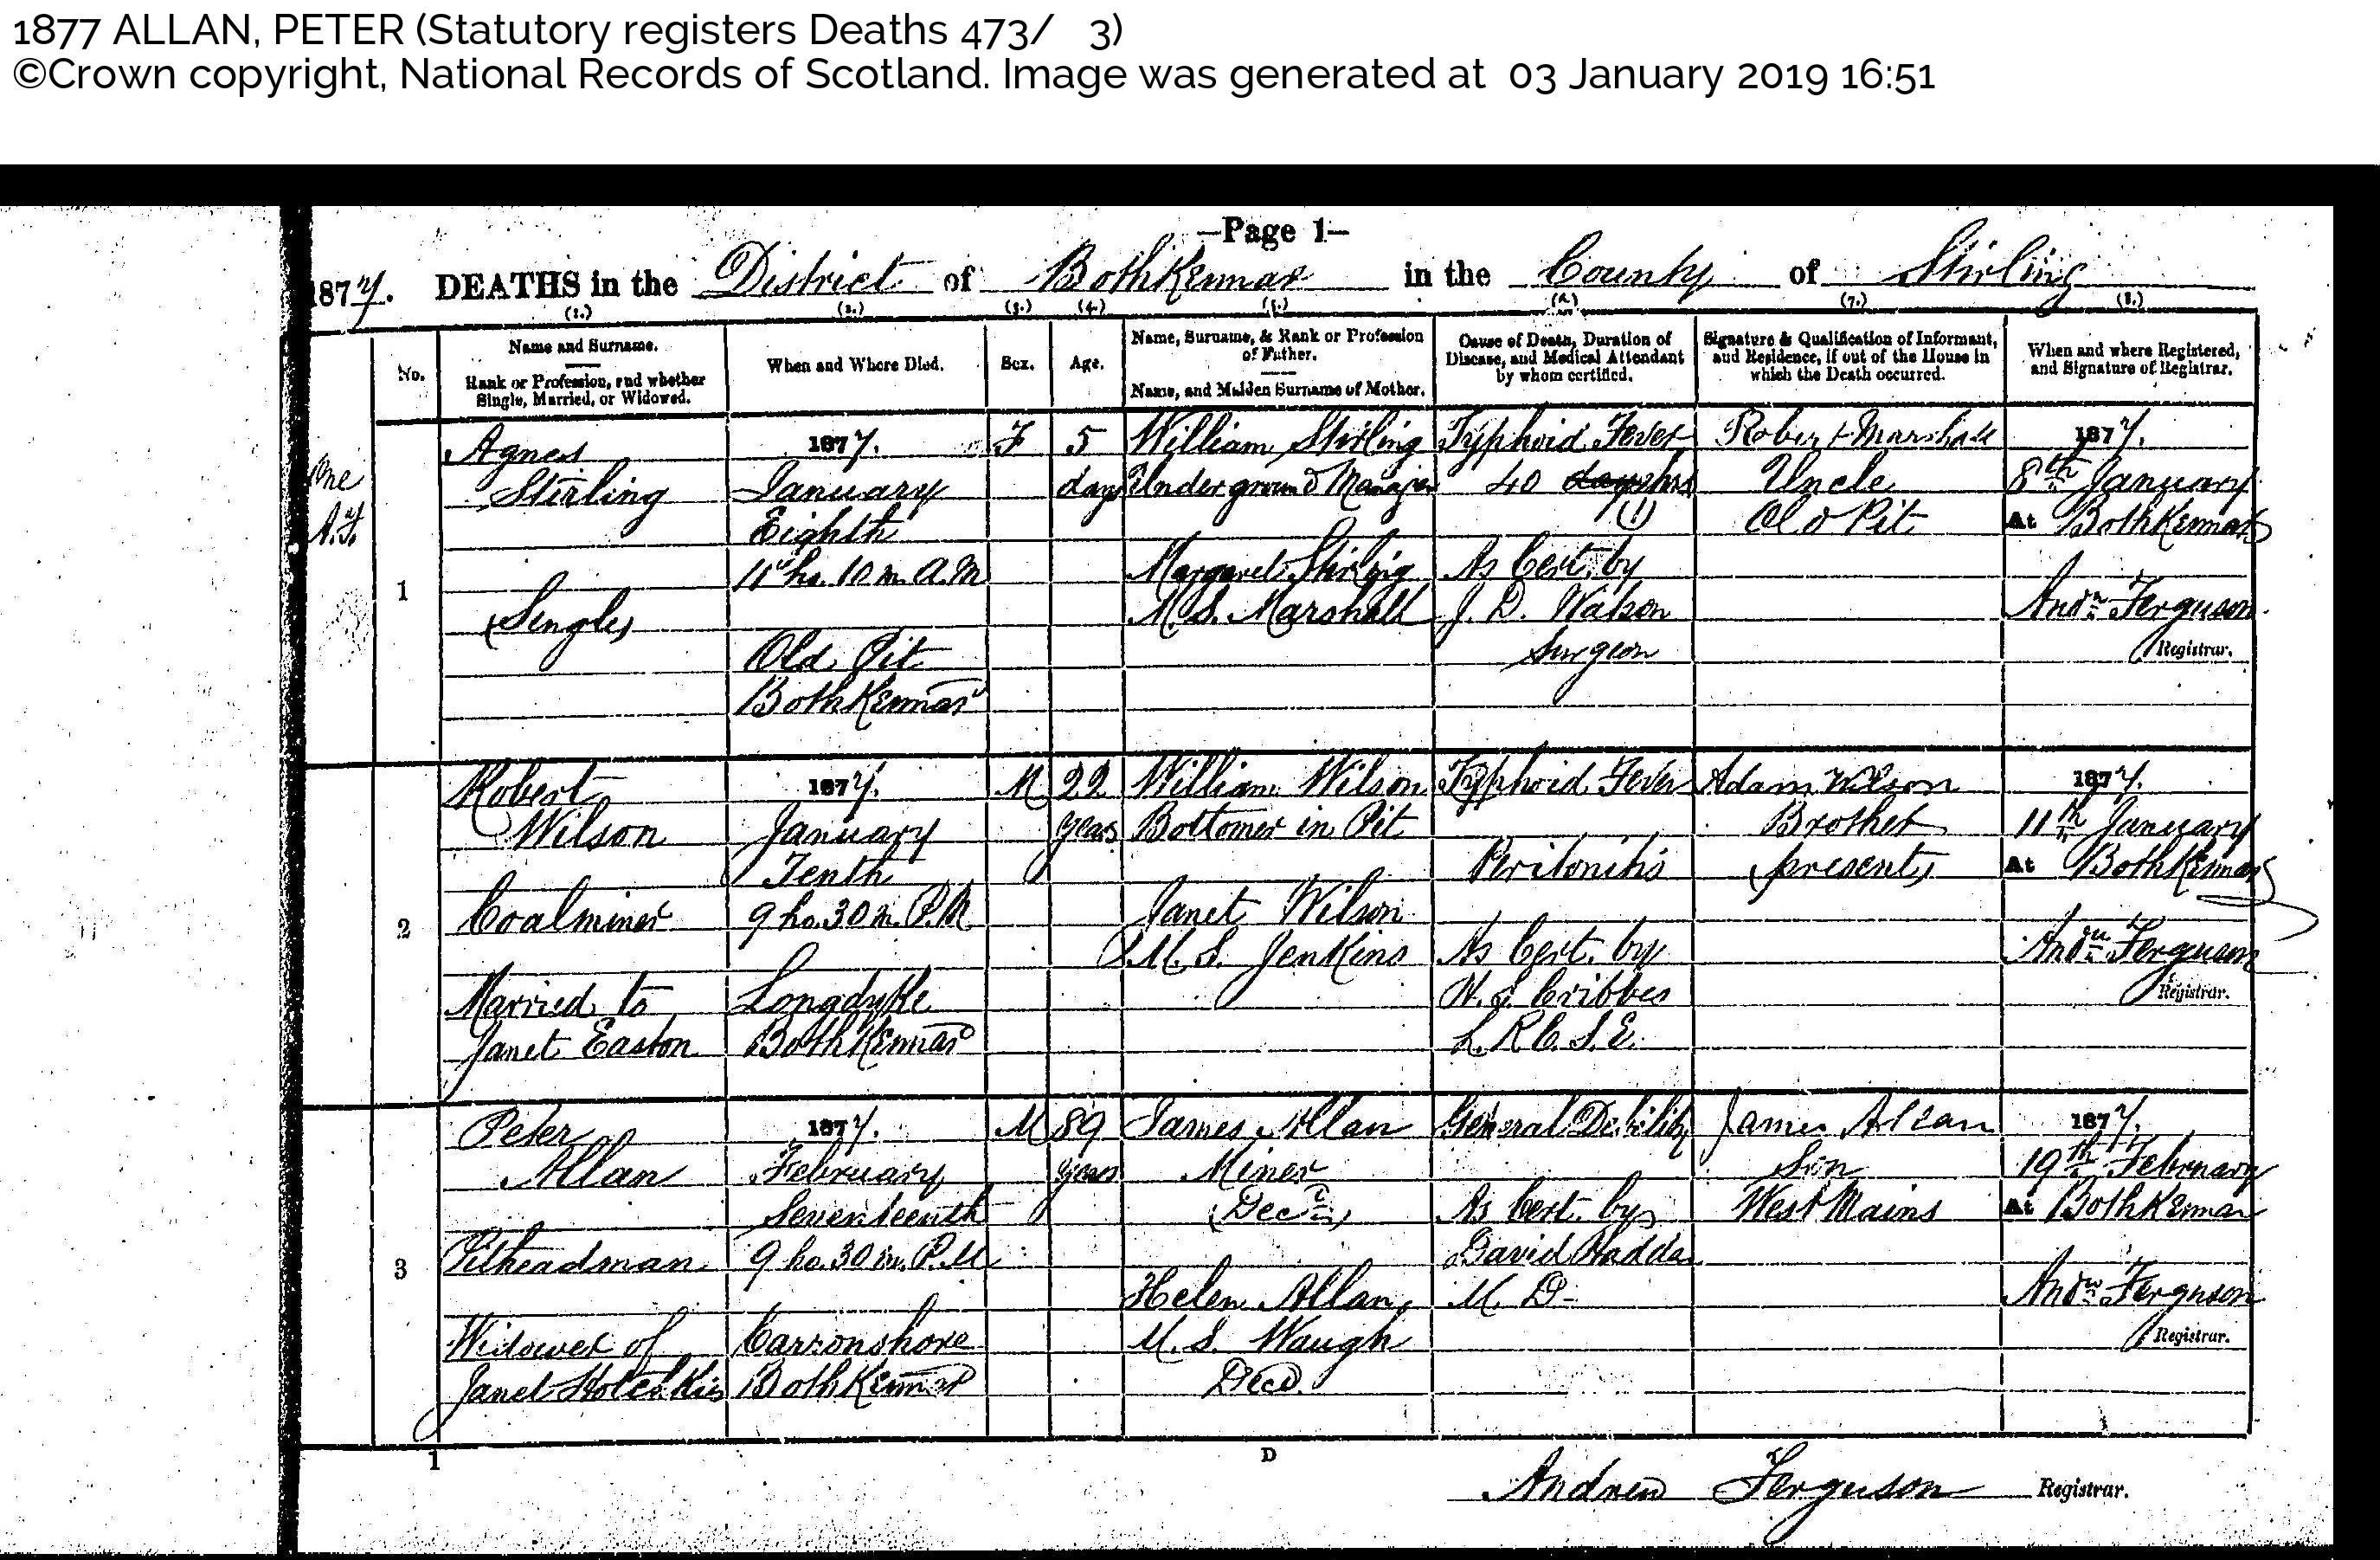 1877 ALLAN, PETER (Statutory registers Deaths 473/ 3)
©Crown copyright, National Records of Scotland. Image was generated at 03 January 2019 16:51
—Page 1—
1877. DEATHS in the District of Bothkennar in the County of Stirling
(1.) (2.) (3.) (4.) (5.) (6.) (7.) (8.)
No.
Name and Surname.
Rank or Profession, and whether
Single, Married, or Widowed.
When and Where Died.
Sex.
Age.
Name, Surname, & Rank or Profession
of Father.
Name, and Maiden Surname of Mother.
Cause of Death, Duration of
Disease, and Medical Attendant
by whom certified.
Signature & Qualification of Informant,
and Residence, if out of the House in
which the Death occurred.
When and where Registered,
and Signature of Registrar.
One
A.F.
1
Agnes
Stirling
(Single)
1877.
January
Eighth
11 ho. 10 m. A.M
Old Pit
Bothkennar
F
5
days
William Stirling
Underground Manager
Margaret Stirling
M.S. Marshall
Typhoid Fever
40 days hrs
(1)
As Cert. by
J. D. Watson
Surgeon
Robert Marshall
Uncle
Old Pit
1877.
8th January
At Bothkennar
Andw Ferguson
Registrar.
2
Robert
Wilson
Coalminer
Married to
Janet Easton
1877.
January
Tenth
9 ho. 30 m. P.M
Longdyke
Bothkennar
M
22
years
William Wilson
Bottomer in Pit
Janet Wilson
M.S. Jenkins
Typhoid Fever
Peritonitis
As Cert. by
Cribbes
L.R.C.S.E.
Adam Wilson
Brother
(present)
1877.
11th January
At Bothkennar
Andw Ferguson
Registrar.
3
Peter
Allan
Pitheadman
Widower of
Janet Hotchkis
1877.
February
Seventeenth
9 ho. 30 m. P.M
Carronshore
Bothkennar
M
89
years
James Allan
Miner
(Decd)
Helen Allan
M.S. Waugh
Decd
General Debility
As Cert. by
David Haddo
M.D.
James Allan
Son
West Mains
1877.
19th February
At Bothkennar
Andw Ferguson
Registrar.
1
D
Andrew Ferguson Registrar.